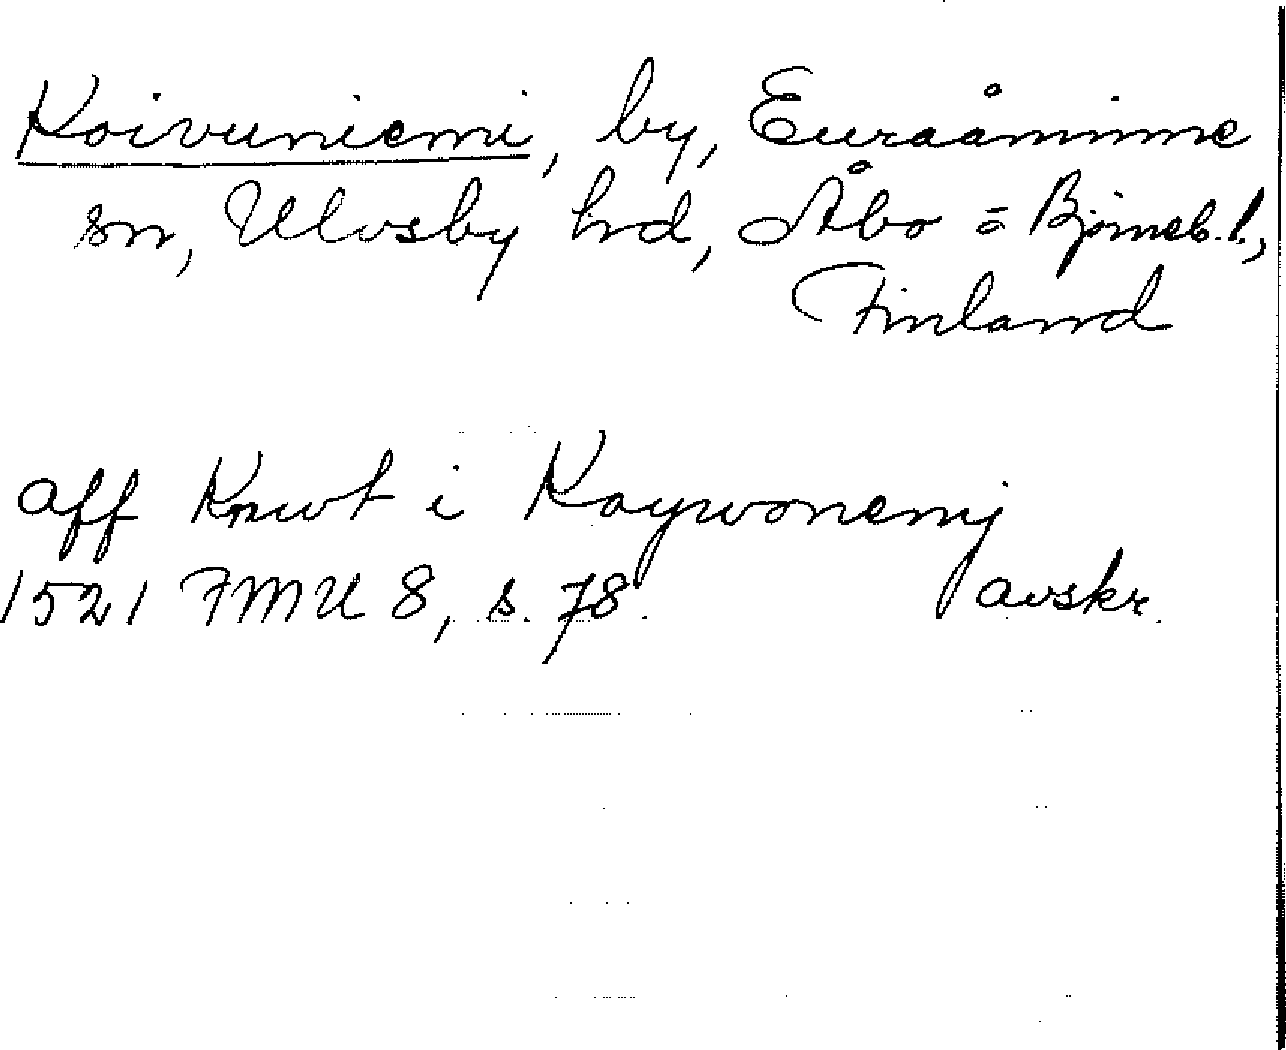 Koivuniemi, by, Euraåminne
sn, Ulvsby hd, Åbo = Björneb. l.,
Finland
aff Knwt i Koywonemj
1521 FMU 8, s. 78. avskr.